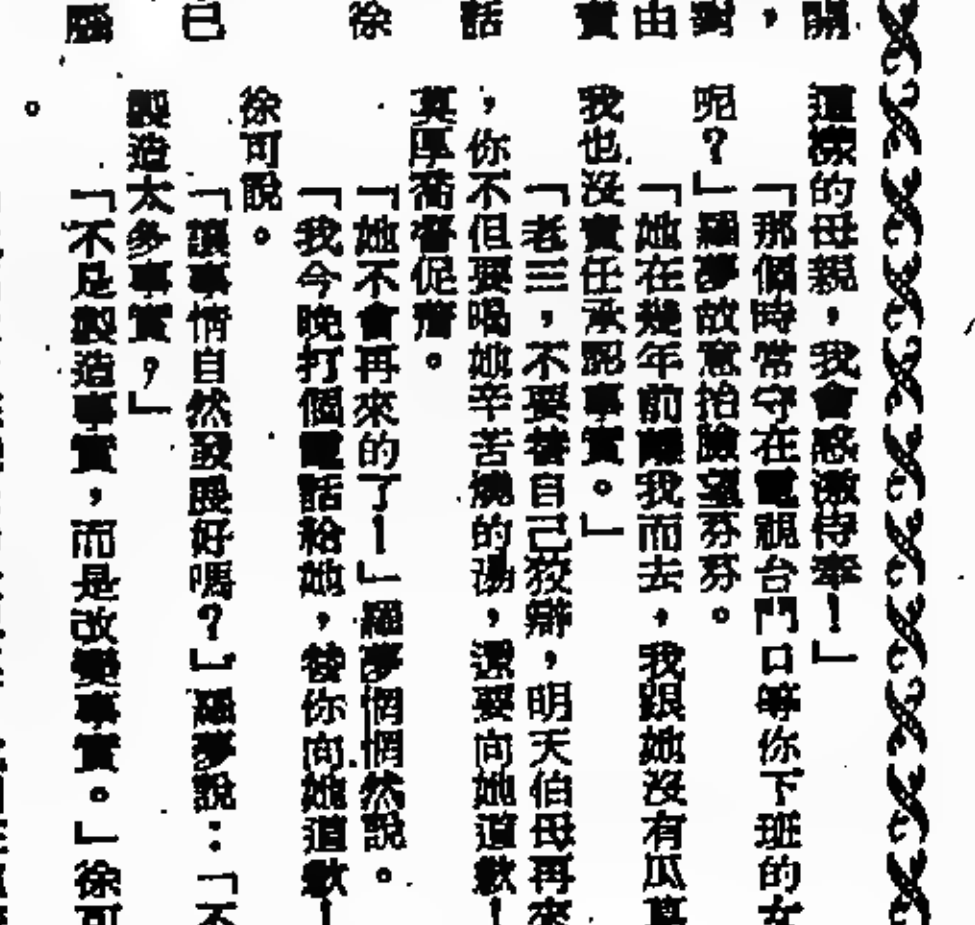 開
這樣的母親,我會感激侍奉!」
,
「那個時常守在電視台門口等你下班的女
對
呢?」羅夢故意抬臉望芬芬。
由
「她在幾年前離我而去,我跟她沒有瓜葛
責
我也沒責任承認事實。」
「老三,不要替自己狡辯,明天伯母再來
話
,你不但要喝她辛苦燒的湯,還要向她道歉!
莫厚喬督促着。
徐
「她不會再來的了!」羅夢惘惘然說。
「我今晚打個電話給她,替你向她道歉!
徐可說。
已
「讓事情自然發展好嗎?」羅夢說:「不
製造太多事實,」
「不是製造事實,而是改變事實。」徐可
。